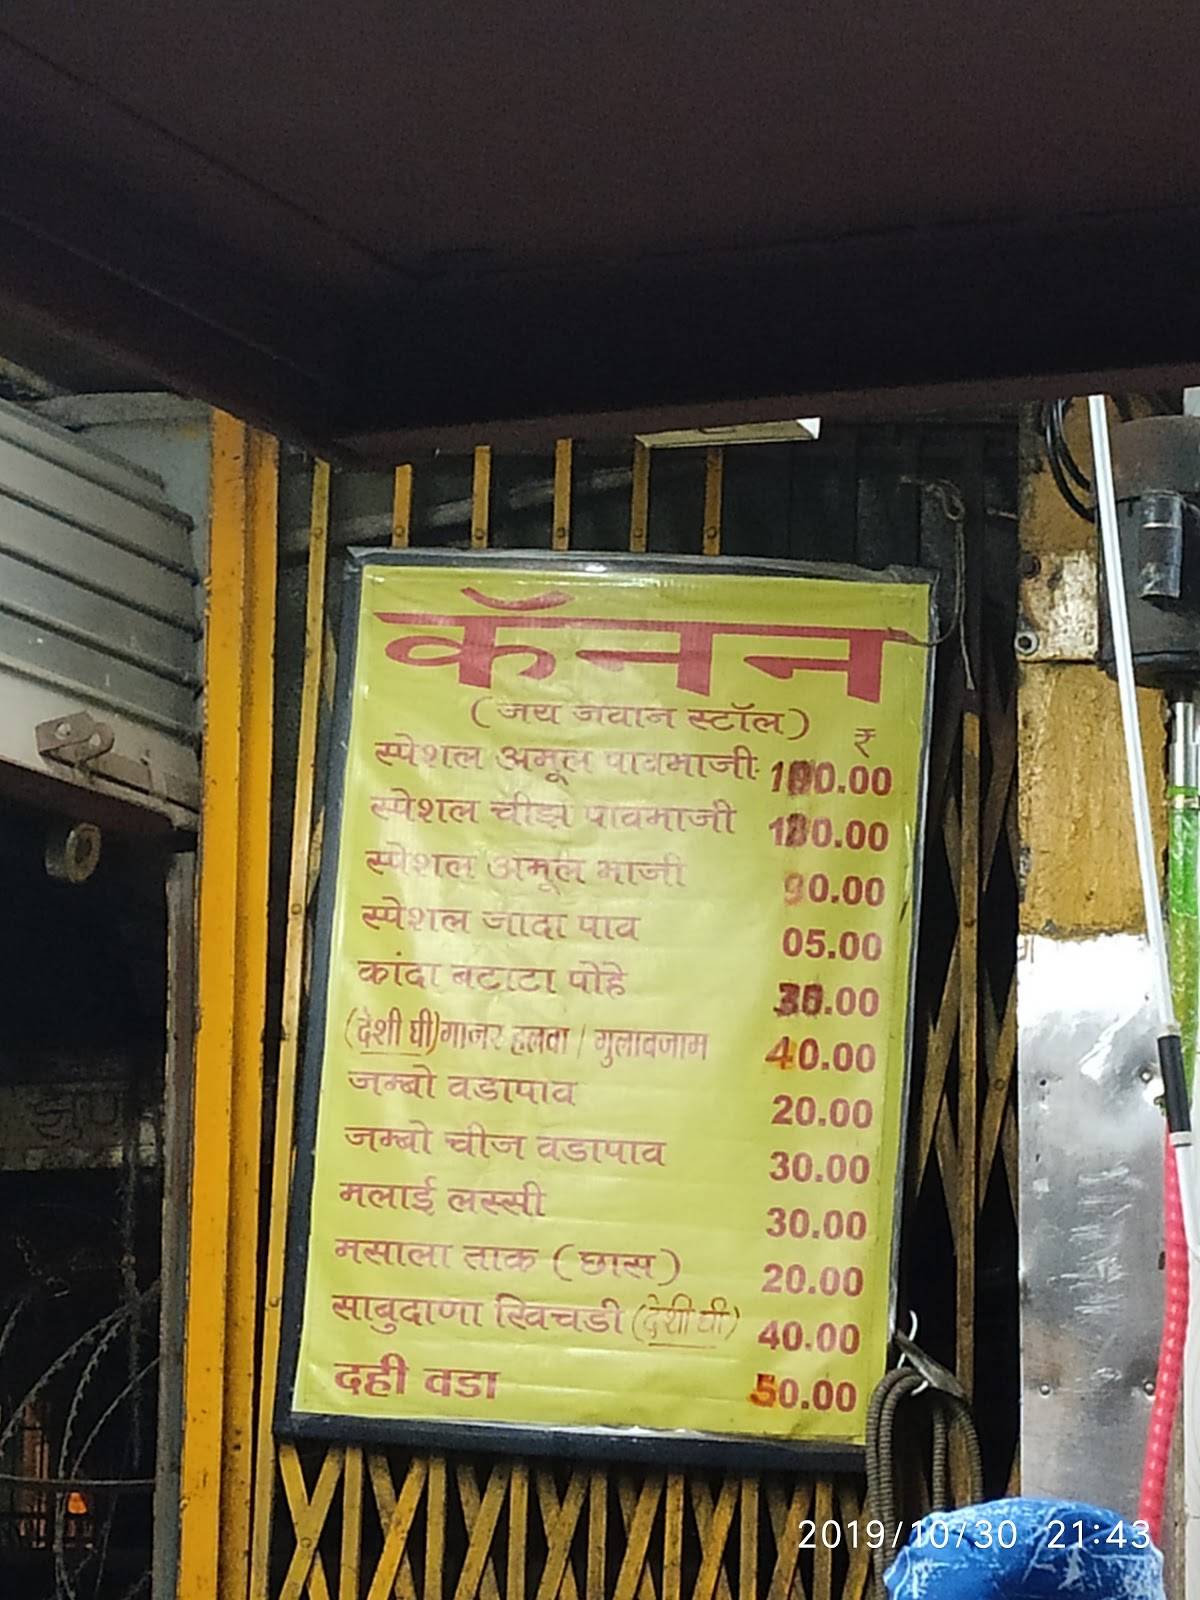 कॅनन
(जय जवान स्टॉल) ₹
स्पेशल अमूल पावभाजी 100.00
स्पेशल चीझ पावभाजी 120.00
स्पेशल अमूल भाजी 90.00
स्पेशल जादा पाव 05.00
कांदा बटाटा पोहे .00
(देशी घी) गाजर हलवा / गुलाबजाम 40.00
जम्बो वडापाव 20.00
जम्बो चीज वडापाव 30.00
मलाई लस्सी 30.00
मसाला ताक (छास) 20.00
साबुदाणा खिचडी (देशी घी) 40.00
दही वडा 50.00
2019/10/30 21:43